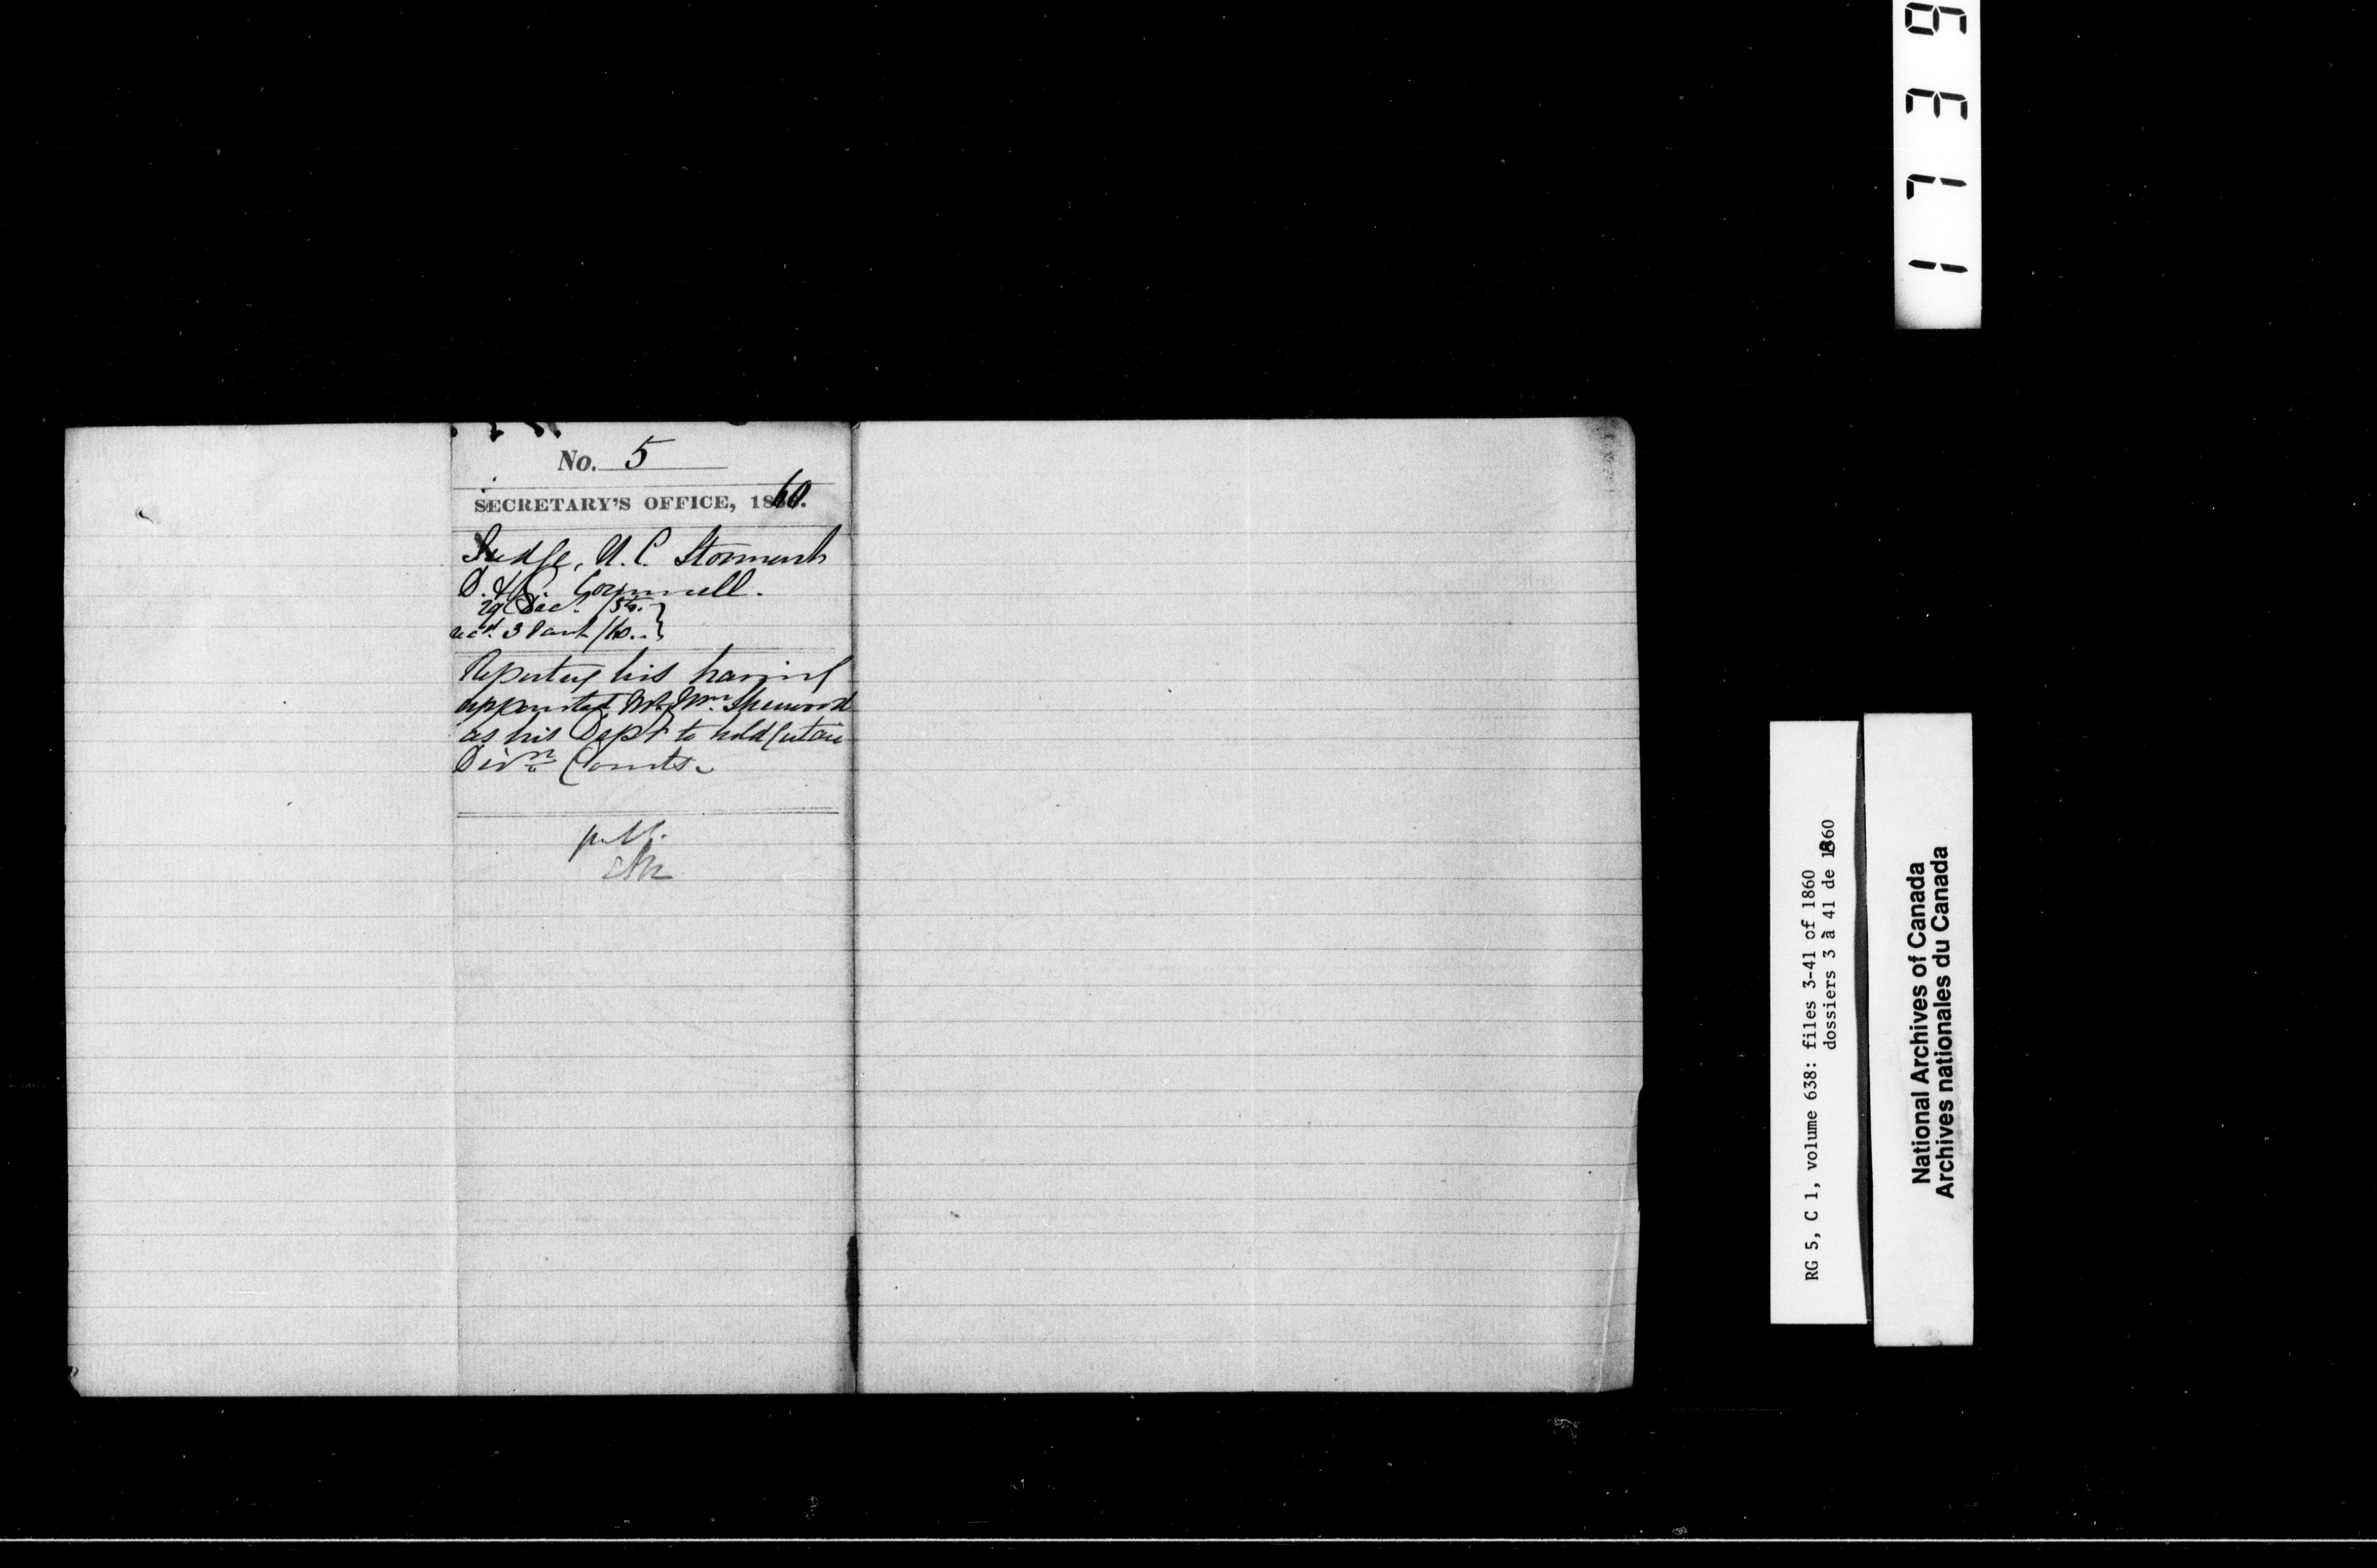 No. 5
SECRETARY'S OFFICE, 1860.
Judge, U.C. Stormont
D. & G. Cornwall.
29 Dec.r /59.
rec.d 3 Jan.y /60.
Reporting his having
appointed Mr. Wm. Sherwood
as his Dep.y to hold certain
Div.n Courts.
RG 5, C 1, volume 638: files 3-41 of 1860
dossiers 3 à 41 de 1860
National Archives of Canada
Archives nationales du Canada
1739